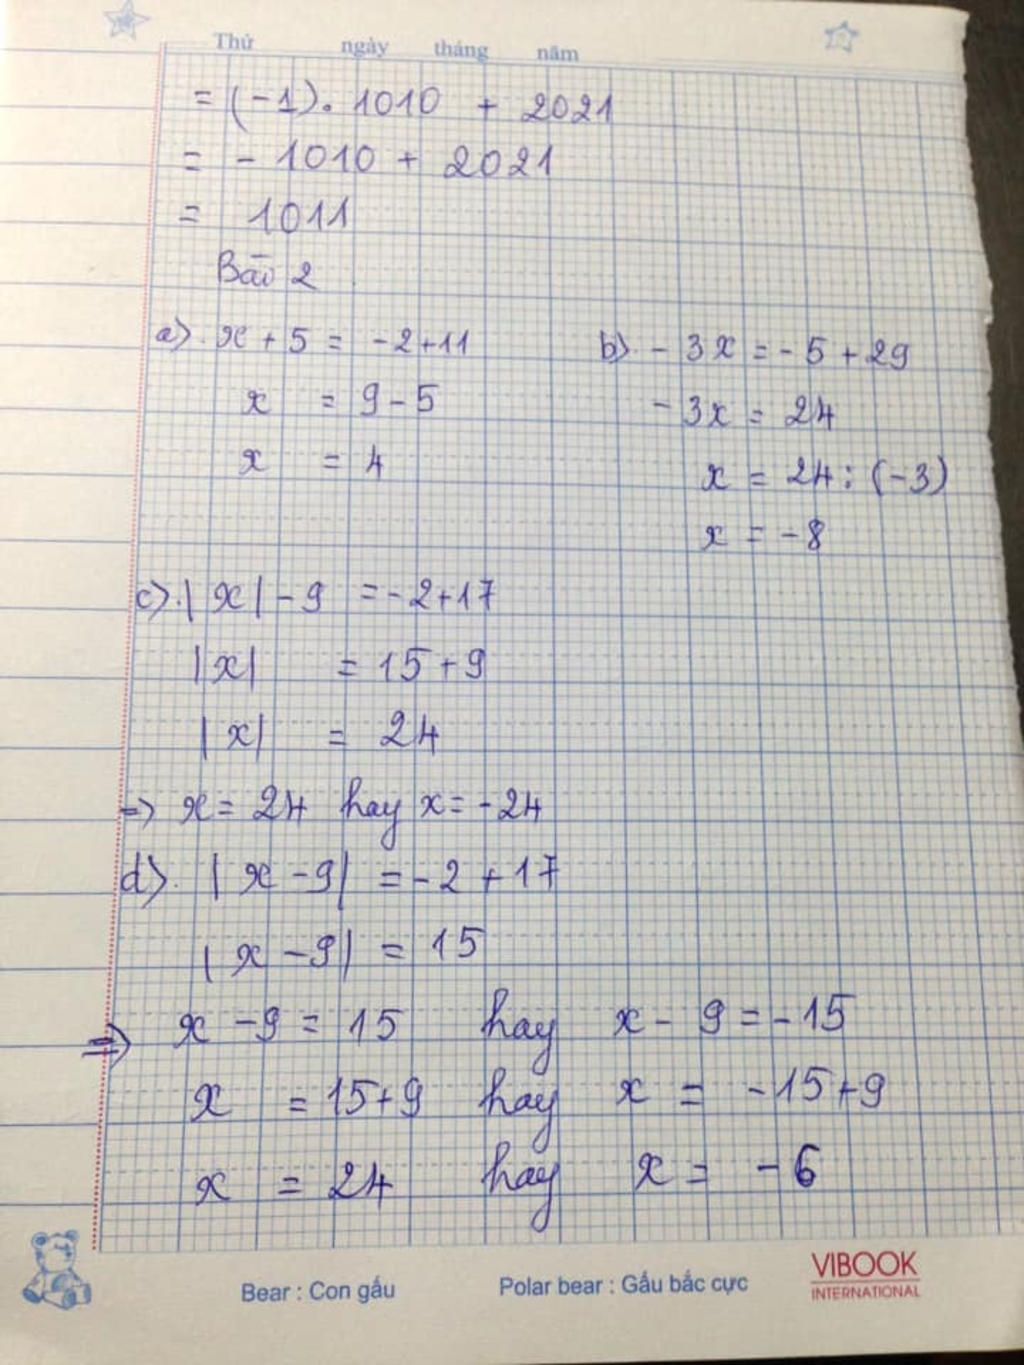 Thứ ngày tháng năm
= (-1). 1010 + 2021
= - 1010 + 2021
= 1011
Bài 2
a). x + 5 = -2+11
x = 9-5
x = 4
b). - 3x = -5 + 29
- 3x = 24
x = 24 : (-3)
x = -8
c). |x| - 9 = -2+17
|x| = 15 + 9
|x| = 24
=> x = 24 hay x = -24
d). |x - 9| = -2 + 17
|x - 9| = 15
=> x - 9 = 15 hay x - 9 = -15
x = 15+9 hay x = -15+9
x = 24 hay x = -6
Bear : Con gấu Polar bear : Gấu bắc cực VIBOOK
INTERNATIONAL